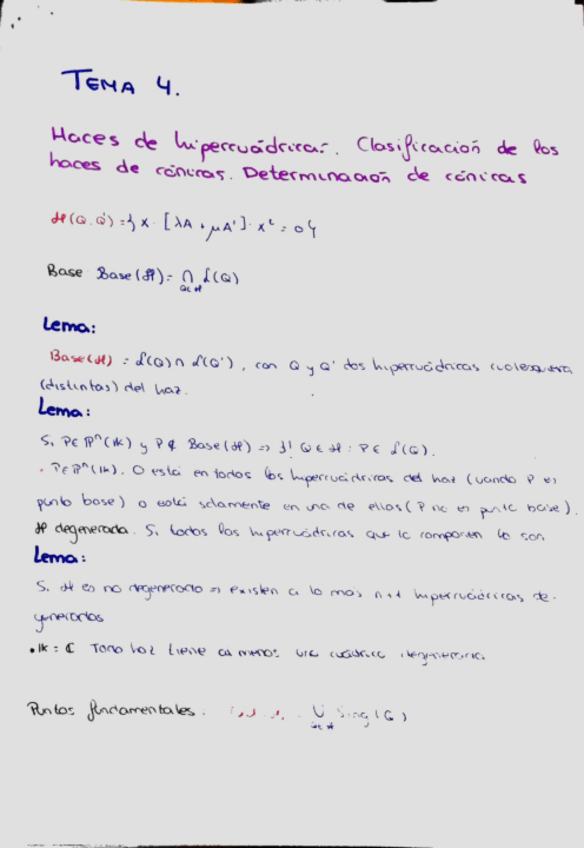 TEMA 4.
Haces de hipercuádricas. Clasificación de los
haces de cónicas. Determinación de cónicas
ℋ(Q,Q') = { x · [λA + μA'] · xᵗ = 0 }
Base Base(ℋ) = ⋂ 𝓛(Q)
Q∈ℋ
Lema:
Base(ℋ) = 𝓛(Q) ∩ 𝓛(Q'), con Q y Q' dos hipercuádricas cualesquiera
(distintas) del haz.
Lema:
Si P∈ℙⁿ(𝕜) y P∉ Base(ℋ) ⇒ ∃! Q∈ℋ : P∈ 𝓛(Q).
· P∈ℙⁿ(𝕜). O está en todos los hipercuádricas del haz (cuando P es
punto base) o está solamente en una de ellas (P no es punto base).
ℋ degenerada. Si todos las hipercuádricas que lo componen lo son
Lema:
Si ℋ es no degenerado ⇒ existen a lo más n+1 hipercuádricas de-
generadas
• 𝕜 = ℂ Todo haz tiene al menos una cuádrica degenerada.
Puntos fundamentales: ⋃ Sing(Q)
Q∈ℋ